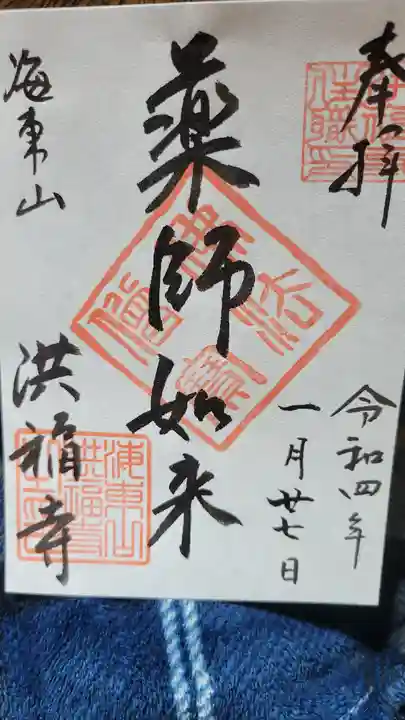 奉拝
令和四年
一月廿七日
薬師如来
海東山
洪福寺
佛法僧寶
海東山
洪福寺